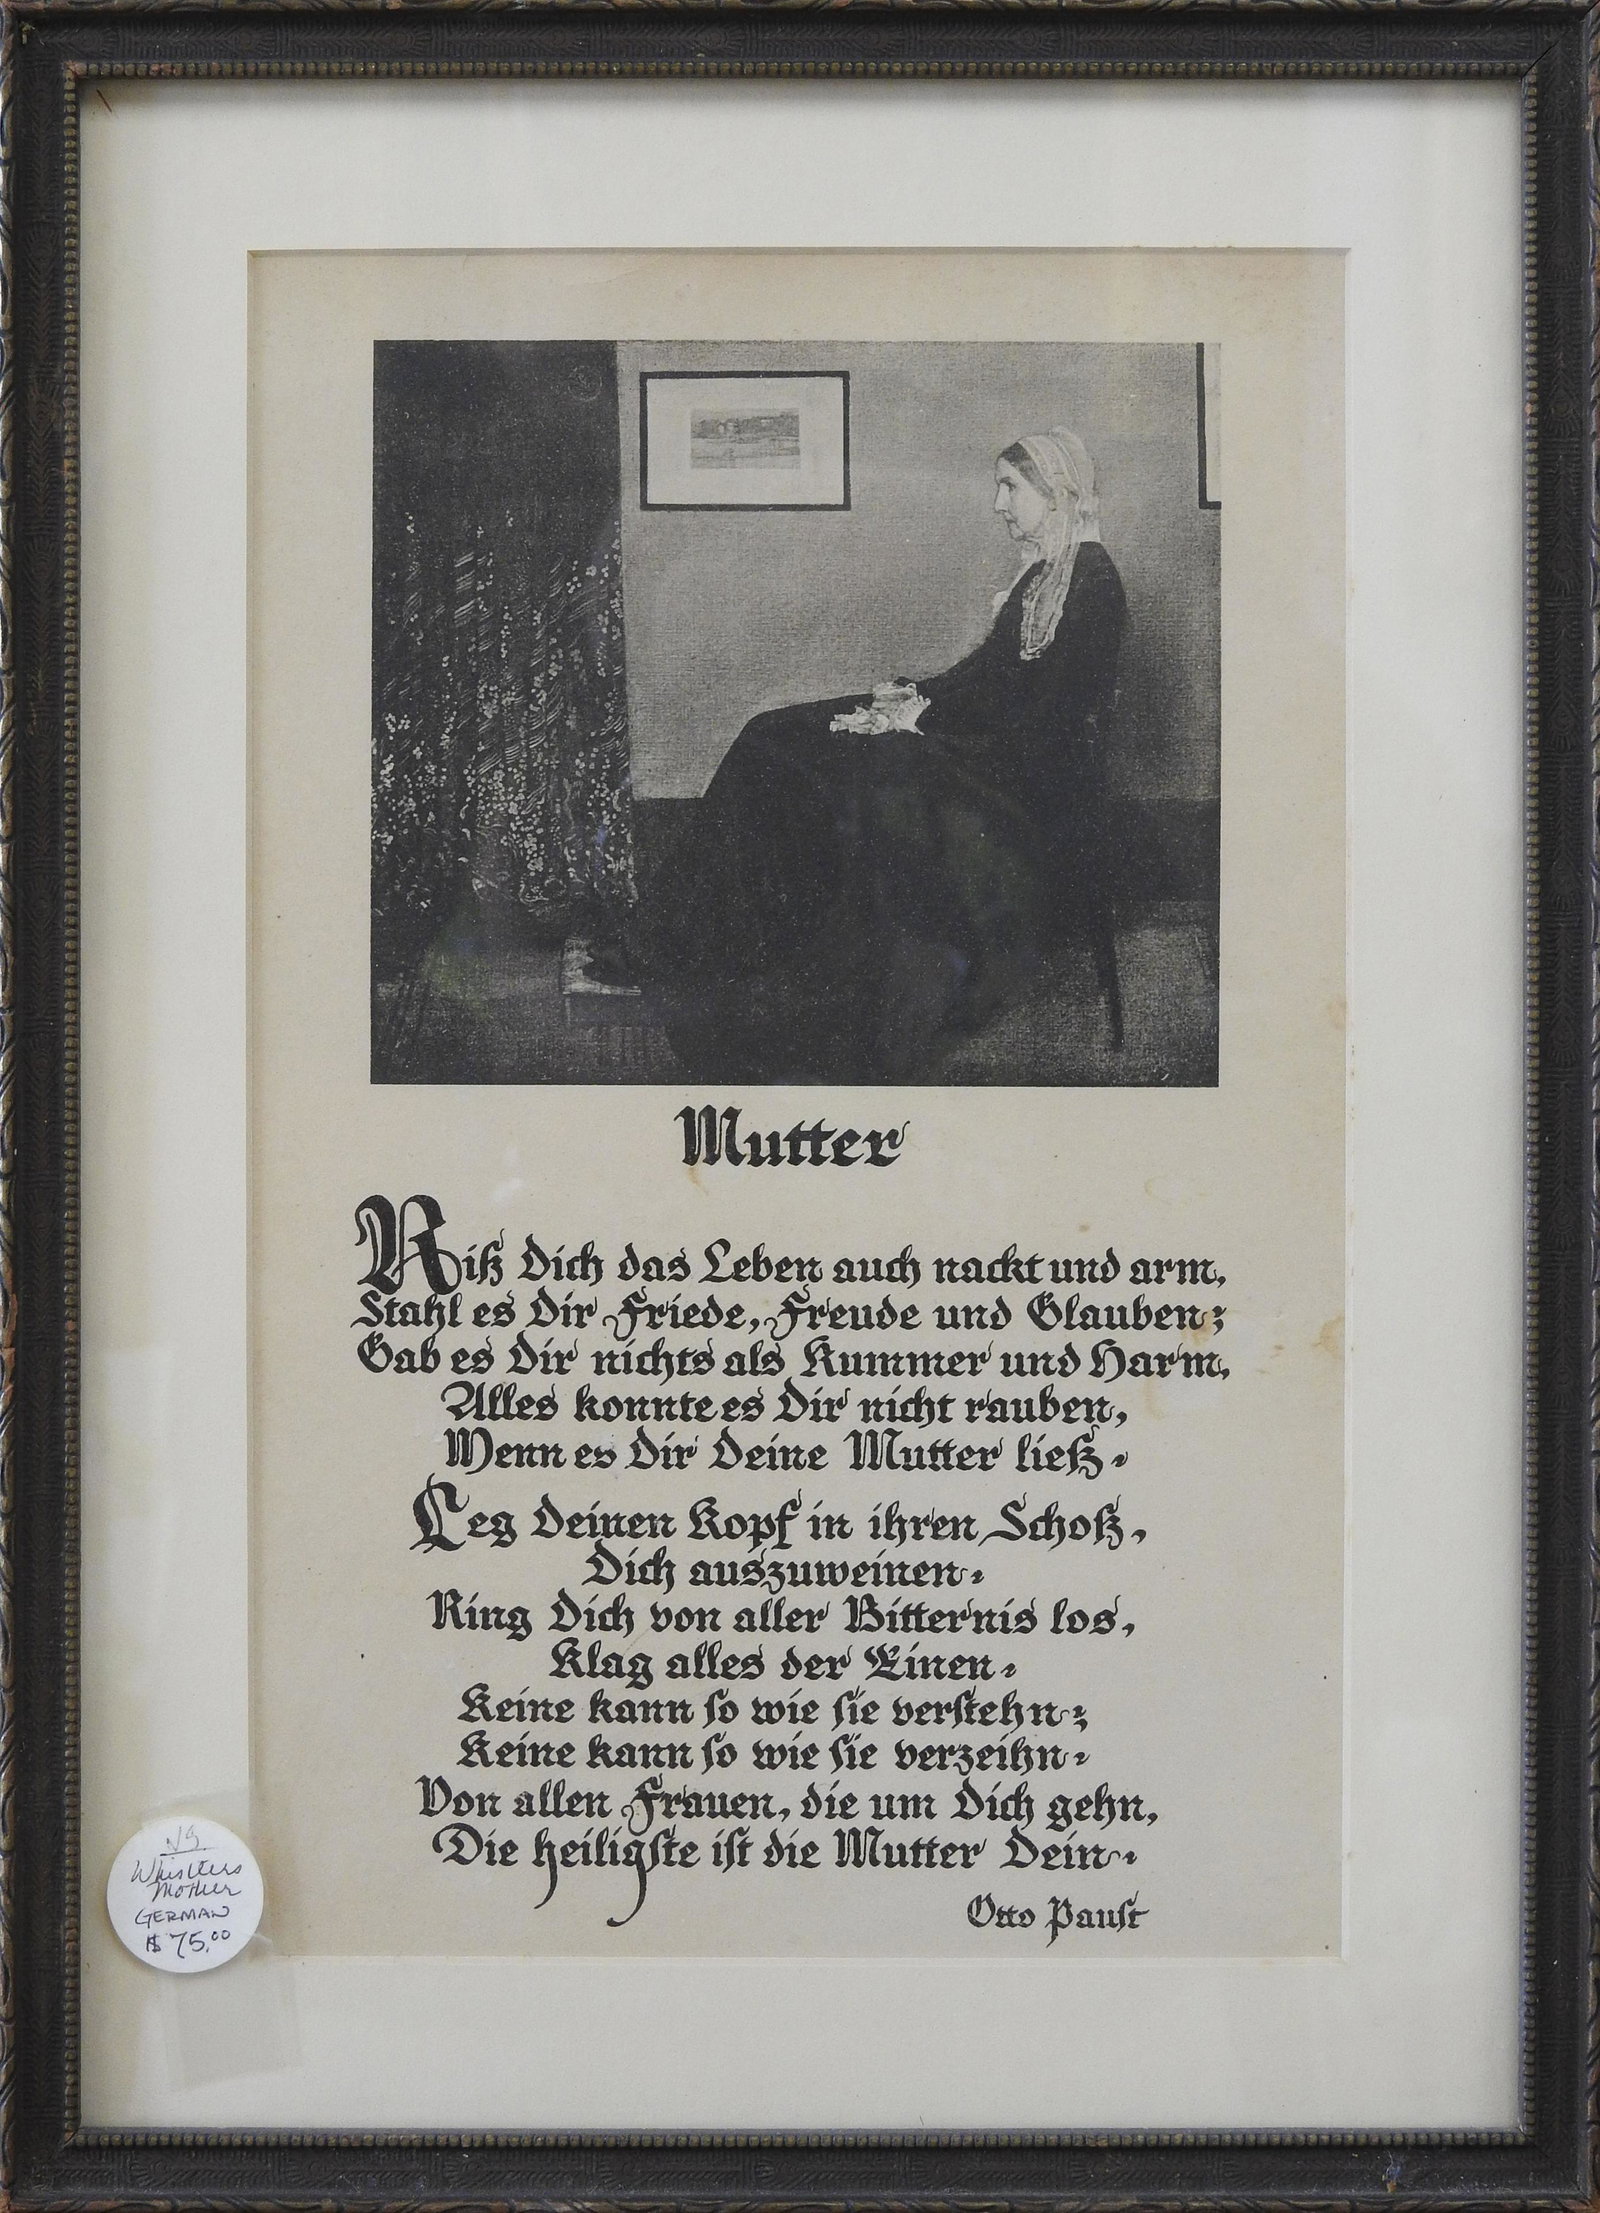 Mutter
Riß Dich das Leben auch nackt und arm,
Stahl es Dir Friede, Freude und Glauben;
Gab es Dir nichts als Kummer und Harm,
Alles konnte es Dir nicht rauben,
Wenn es Dir Deine Mutter ließ.
Leg Deinen Kopf in ihren Schoß,
Dich auszuweinen.
Ring Dich von aller Bitternis los,
Klag alles der Einen.
Keine kann so wie sie verstehn;
Keine kann so wie sie verzeihn.
Von allen Frauen, die um Dich gehn,
Die heiligste ist die Mutter Dein.
Otto Paust
Whistlers
Mother
GERMAN
$75.00